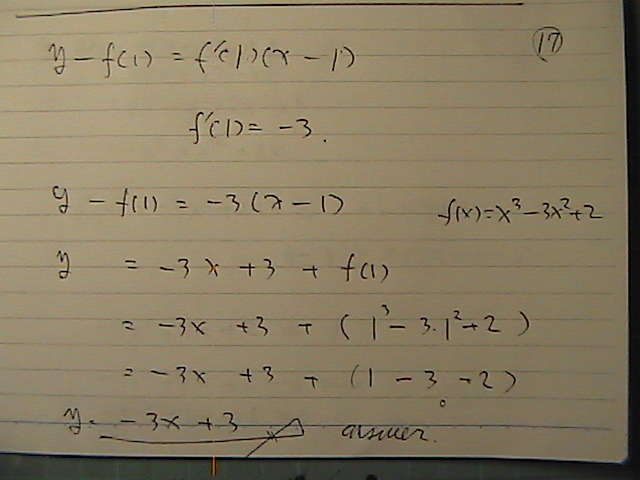 17
y - f(1) = f'(1)(x - 1)
f'(1) = -3.
y - f(1) = -3(x - 1)
f(x) = x³ - 3x² + 2
y = -3x + 3 + f(1)
= -3x + 3 + (1³ - 3.1² + 2)
= -3x + 3 + (1 - 3 + 2)
y = -3x + 3 answer.